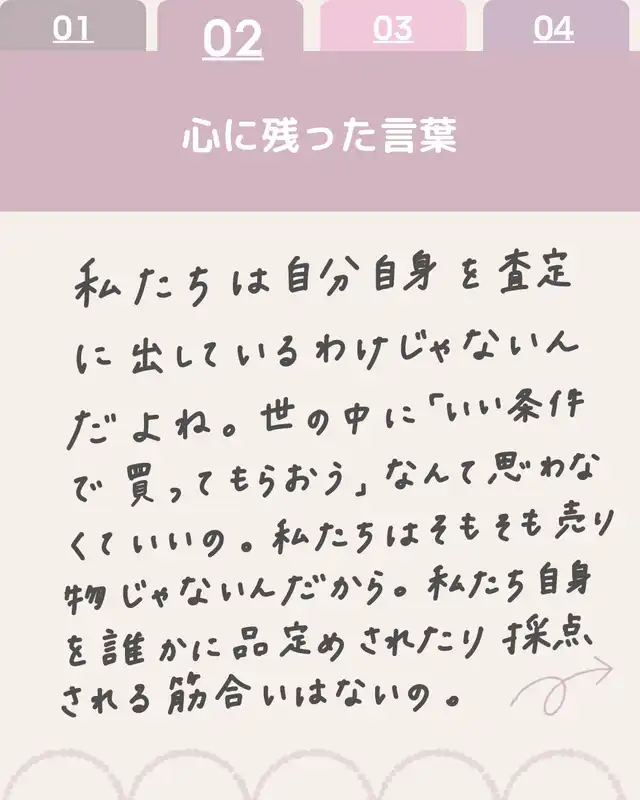 01 02 03 04
心に残った言葉
私たちは自分自身を査定
に出しているわけじゃないん
だよね。世の中に「いい条件
で買ってもらおう」なんて思わな
くていいの。私たちはそもそも売り
物じゃないんだから。私たち自身
を誰かに品定めされたり採点
される筋合いはないの。